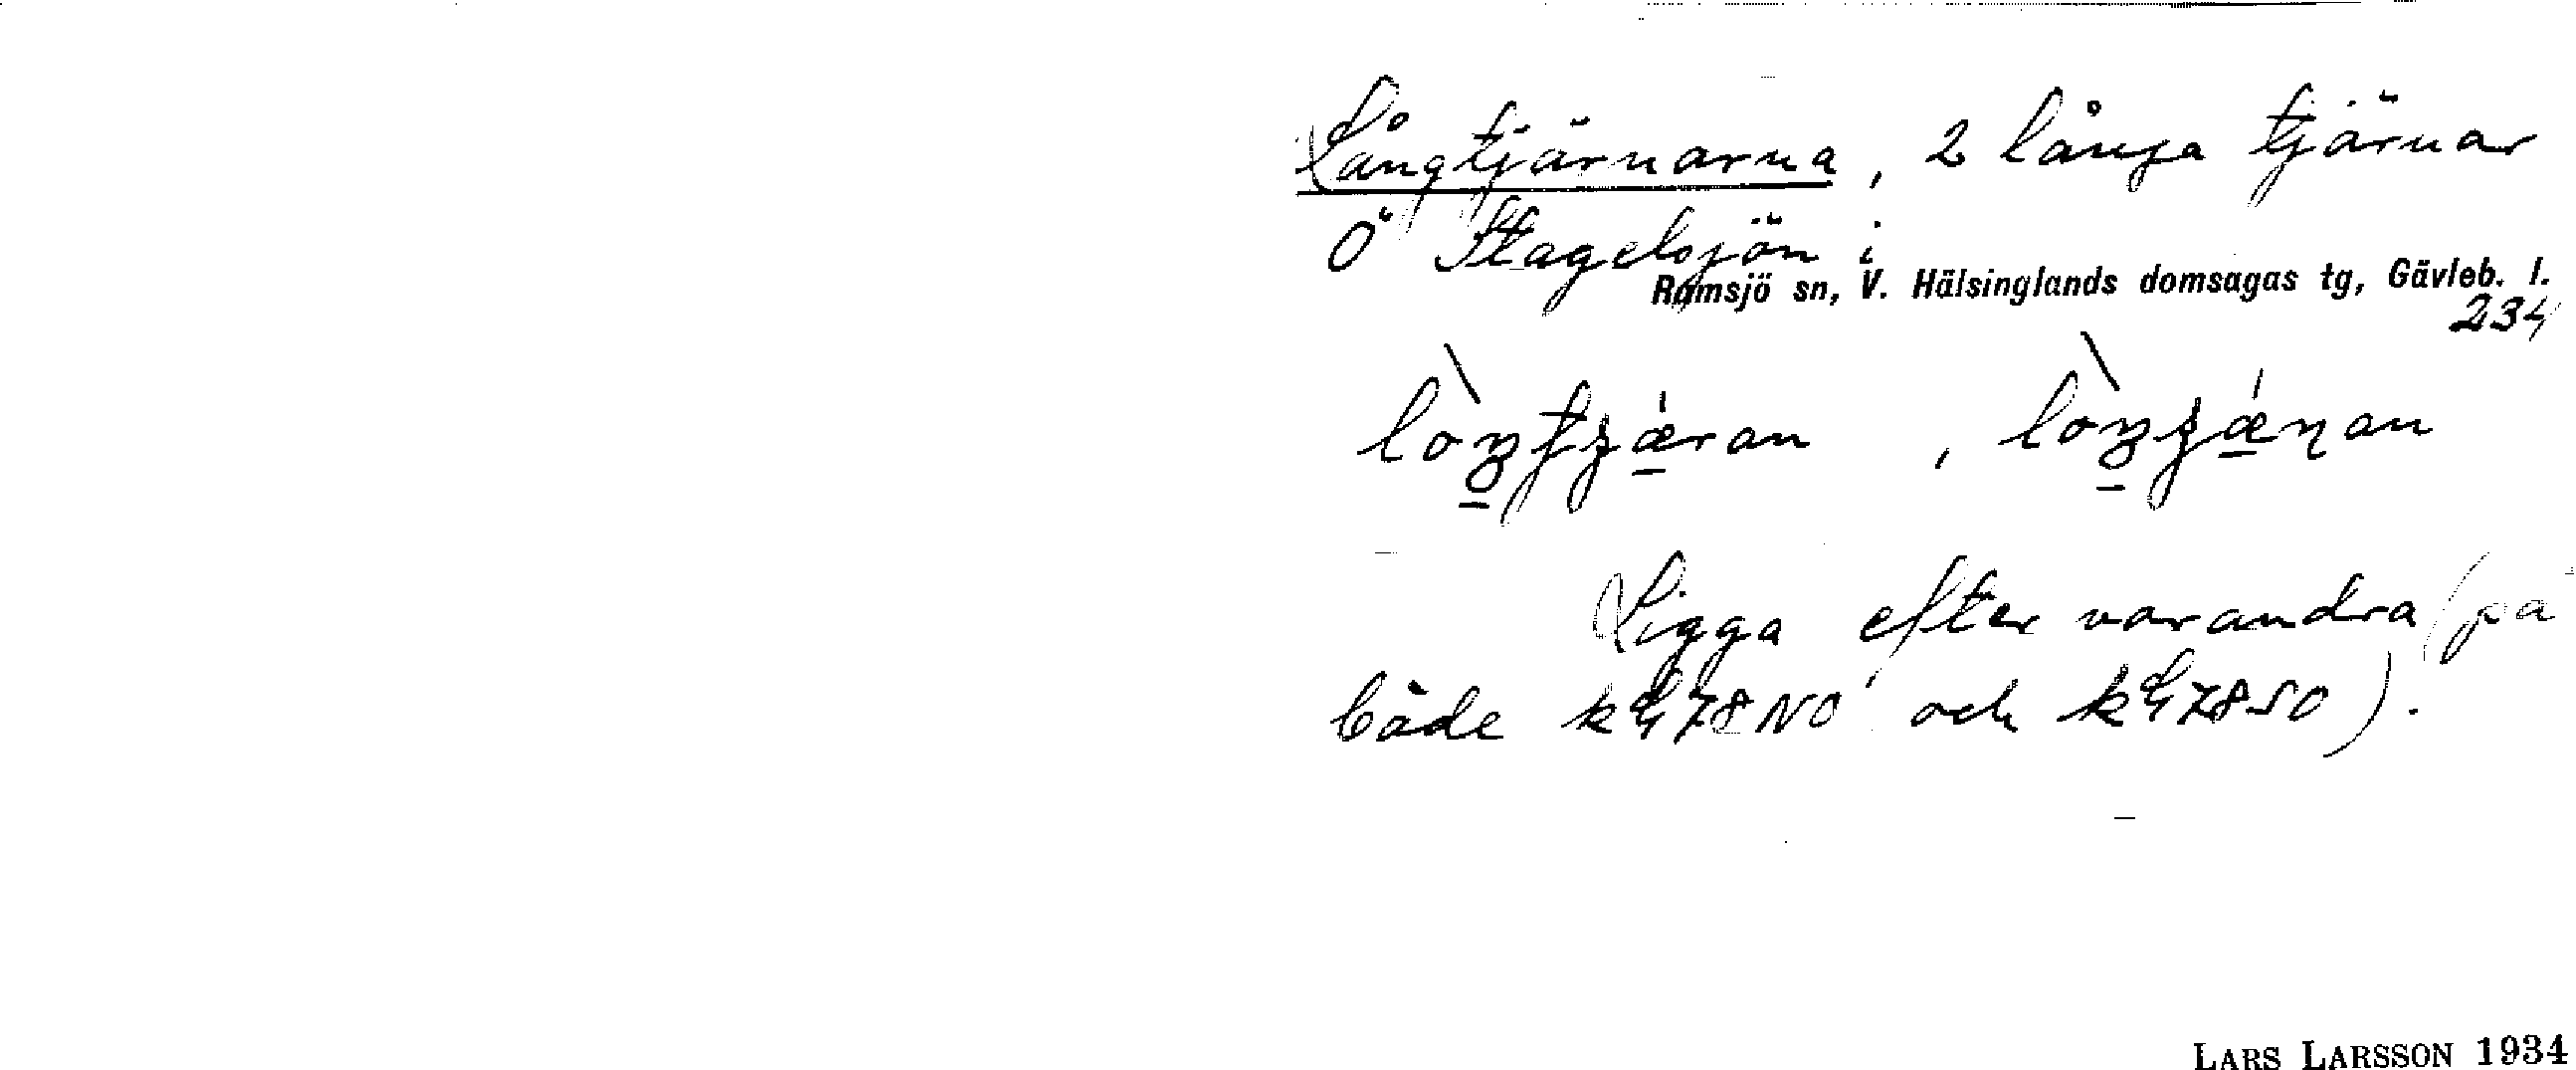 Långtjärnarna, 2 långa tjärnar
Ö Stagelsjön i
Ramsjö sn, V. Hälsinglands domsagas tg, Gävleb. l.
234
Ligga efter varandra (på
både k 78 NO och k 78 SO).
LARS LARSSON 1934